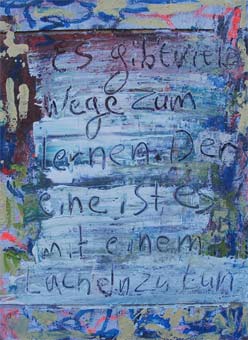 es gibt viele
Wege zum
lernen. Der
eine ist es
mit einem
Lächeln zu tun